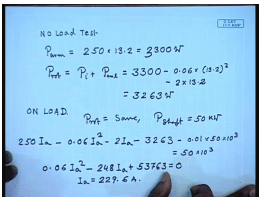 NO LOAD Test
Parm = 250 × 13.2 = 3300 W
Prot = Pi + Pmel = 3300 - 0.06 × (13.2)²
- 2 × 13.2
= 3263 W
ON LOAD.
Prot = Same, Pshaft = 50 KW
250 Ia - 0.06 Ia² - 2Ia - 3263 - 0.01 × 50×10³
= 50×10³
0.06 Ia² - 248 Ia + 53763 = 0
Ia = 229.6 A.